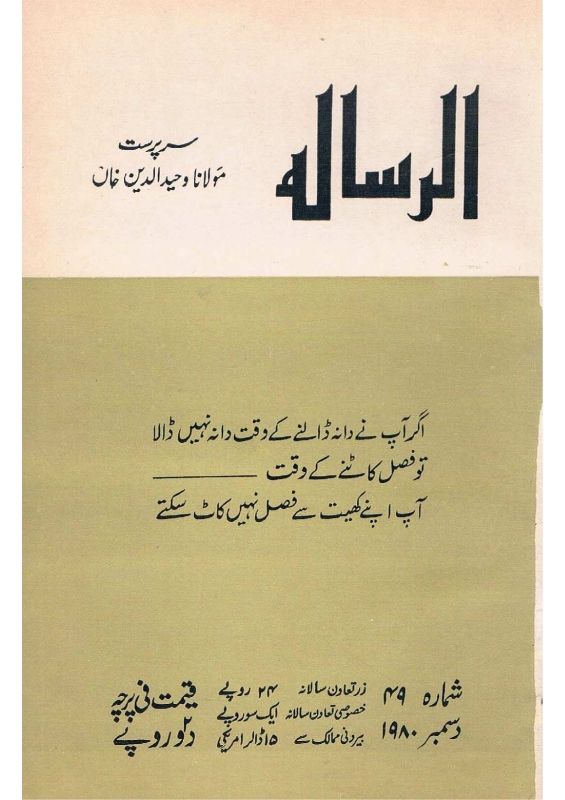 الرسالہ
سرپرست
مولانا وحید الدین خاں
اگر آپ نے دانہ ڈالنے کے وقت دانہ نہیں ڈالا
تو فصل کاٹنے کے وقت ————
آپ اپنے کھیت سے فصل نہیں کاٹ سکتے
شمارہ ۴۹
دسمبر ۱۹۸۰
زر تعاون سالانہ ۲۴ روپے
خصوصی تعاون سالانہ ایک سو روپے
بیرونی ممالک سے ۱۵ ڈالر امریکی
قیمت فی پرچہ
دو روپے